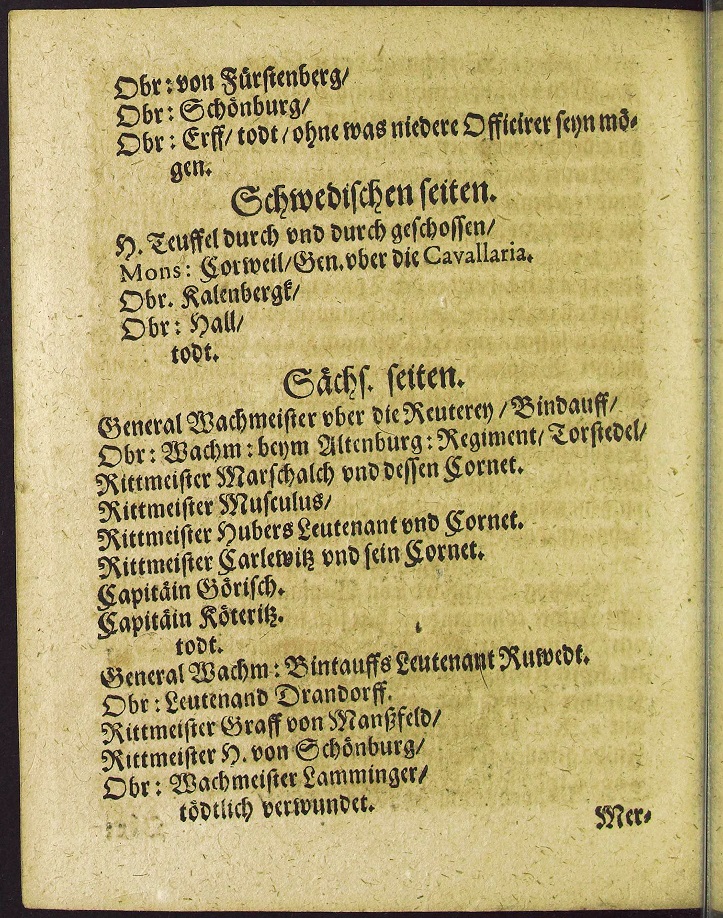 Obr: von Fürstenberg/
Obr: Schönburg/
Obr: Erff/ todt/ ohne was niedere Officirer seyn mö-
gen.
Schwedischen seiten.
H. Teuffel durch vnd durch geschossen/
Mons: Corweil/Gen. vber die Cavallaria.
Obr. Kalenbergk/
Obr: Hall/
todt.
Sächs. seiten.
General Wachmeister vber die Reuterey/ Bindauff/
Obr: Wachm: beym Altenburg: Regiment/ Torstedel/
Rittmeister Marschalch vnd dessen Cornet.
Rittmeister Musculus/
Rittmeister Hubers Leutenant vnd Cornet.
Rittmeister Carlewitz vnd sein Cornet.
Capitäin Görisch.
Capitäin Köteritz.
todt.
General Wachm: Bintauffs Leutenant Ruwedt.
Obr: Leutenand Drandorff.
Rittmeister Graff von Manßfeld/
Rittmeister H. von Schönburg/
Obr: Wachmeister Lamminger/
tödtlich verwundet.
Mer-